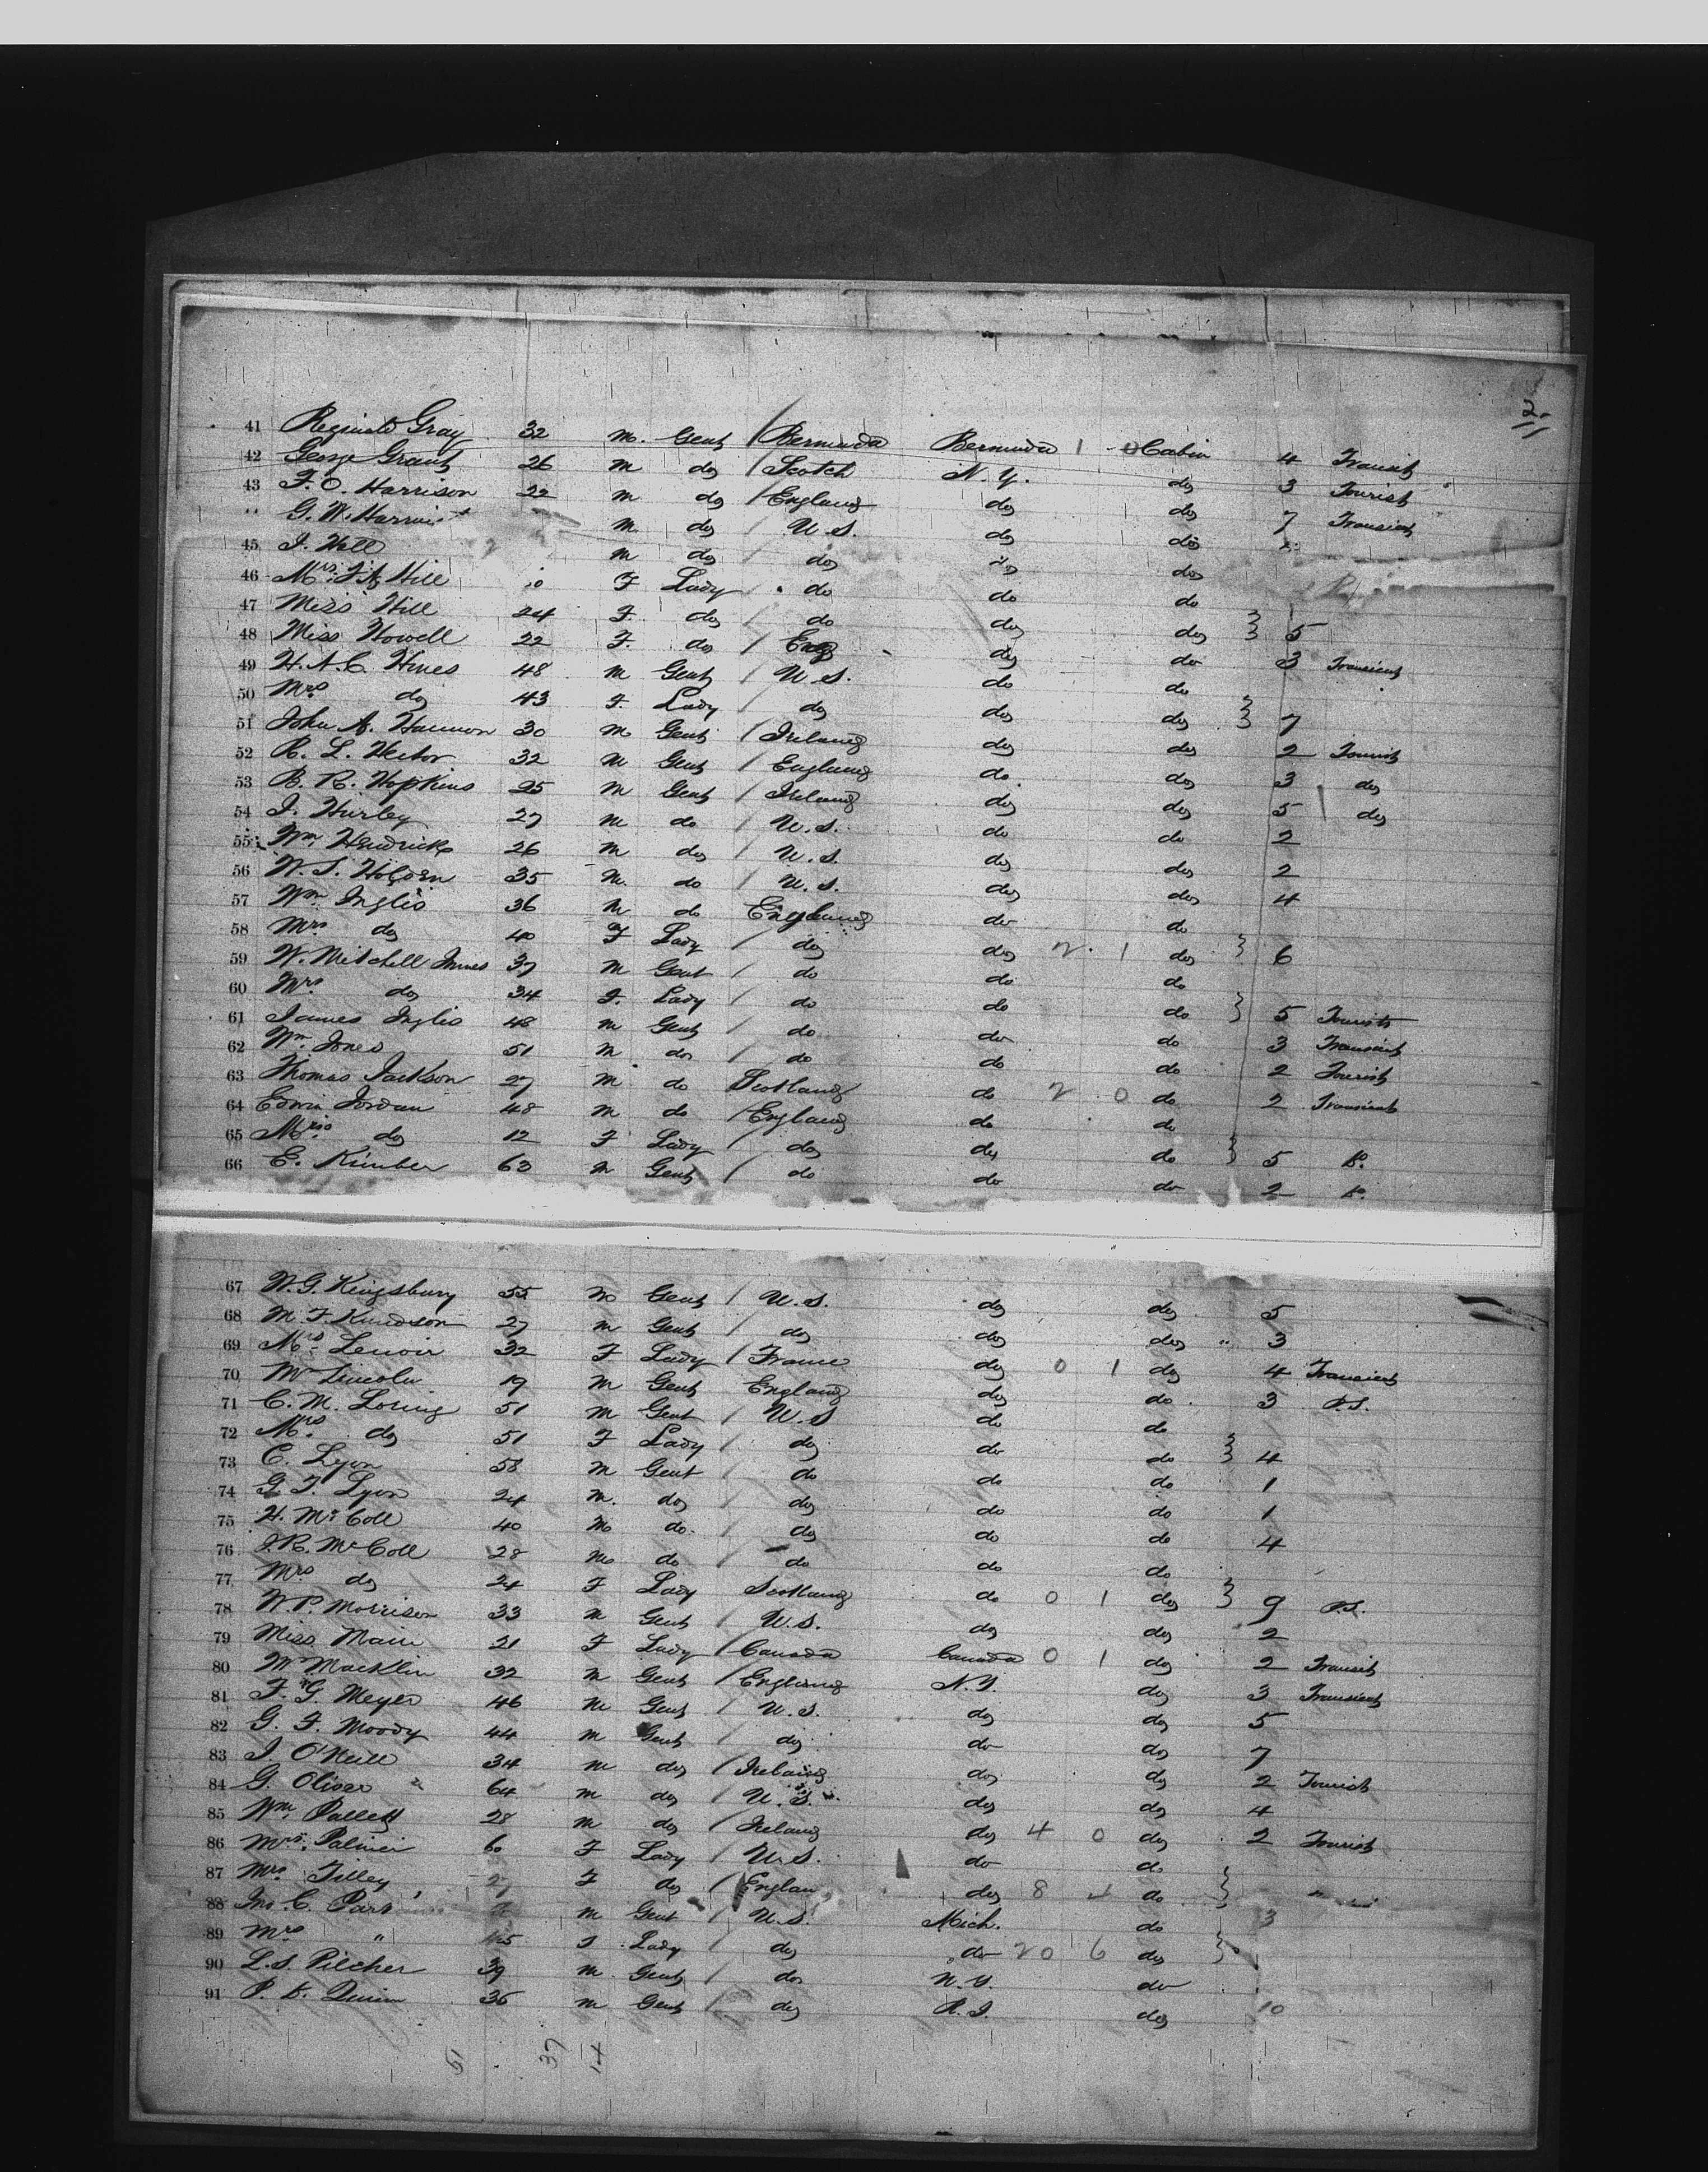 2
41 Reginald Gray 32 m. Gent / Bermuda Bermuda 1 0 Cabin 4 Transit
42 George Grant 26 m do / Scotch N.Y. do 3 Tourist
43 F. O. Harrison 22 m do / England do do 7 Transient
G. W. m. do / U.S. do do
45 J. Hill m do / do do do
46 Mrs. Hill F Lady do do do
47 Miss Hill 24 F. do / do do do } 5
48 Miss Howell 22 F. do / Eng do do 3 Transient
49 H. N. C. Hines 48 m Gent / U.S. do do
50 Mrs do 43 F. Lady / do do do } 7
51 John A. 30 m Gent / Ireland do do 2 Tourist
52 R. L. Hector 32 m Gent / England do do 3 do
53 B. R. Hopkins 25 m Gent / Ireland do do 5 do
54 J. Hurley 27 m do / U.S. do do 2
55 Wm. Hendricks 26 m do / U.S. do do 2
56 W. S. Holden 35 m. do / U.S. do do 4
57 Wm Inglis 36 m do England do do
58 Mrs do 40 F Lady / do do 2 1 do } 6
59 W. Mitchell Innes 37 m Gent / do do do
60 Mrs do 34 F. Lady / do do do } 5 Tourists
61 James Inglis 48 m Gent / do do do 3 Transient
62 Wm. Jones 51 m do / do do do 2 Tourist
63 Thomas Jackson 27 m do Scotland do 2 0 do 2 Transient
64 Edwin Jordan 48 m do / England do do
65 do 12 F Lady / do do do } 5
66 E. Kimber 63 m Gent / do do do 2
67 W. G. Kingsbury 55 m Gent / U.S. do do 5
68 M. F. Knudson 27 m Gent / do do do " 3
69 Mrs. Lenoir 32 F Lady / France do 0 1 do 4 Transient
70 Mr Lincoln 19 m Gent England do do 3
71 C. M. Loring 51 m Gent / U.S do do
72 Mrs. do 51 F Lady / do do do } 4
73 C. Lyon 58 m Gent / do do do 1
74 G. F. Lyon 24 m. do / do do do 1
75 H. McColl 40 m do / do do do 4
76 J. R. McColl 28 m do / do do do
77 Mrs do 24 F Lady Scotland do 0 1 do } 9
78 W. P. Morrison 33 m Gent / U.S. do do 2
79 Miss Main 21 F Lady / Canada Canada 0 1 do 2 Transit
80 W Macklin 32 m Gent / England N.Y. do 3 Transient
81 F. G. Meyer 46 m Gent / U.S. do do 5
82 G. F. Moody 44 m Gent / do do do 7
83 J. O'Neill 34 m do / Ireland do do 2 Tourist
84 G. Oliver 64 m do / U.S. do do 4
85 Wm. Pallett 28 m do / Ireland do 4 0 do 2 Tourist
86 Mrs. Palmer 60 F Lady / U.S. do do
87 Mrs. Tilley 27 F do / Englan do 8 do }
88 Jno. C. m Gent / U.S. Mich. do 3
89 Mrs " 45 Lady / do do 20 6 do }
90 L. S. Pilcher 39 m Gent / do N.Y. do
91 P. Quinn 36 m Gent / do R.I. do 10
51 37 14